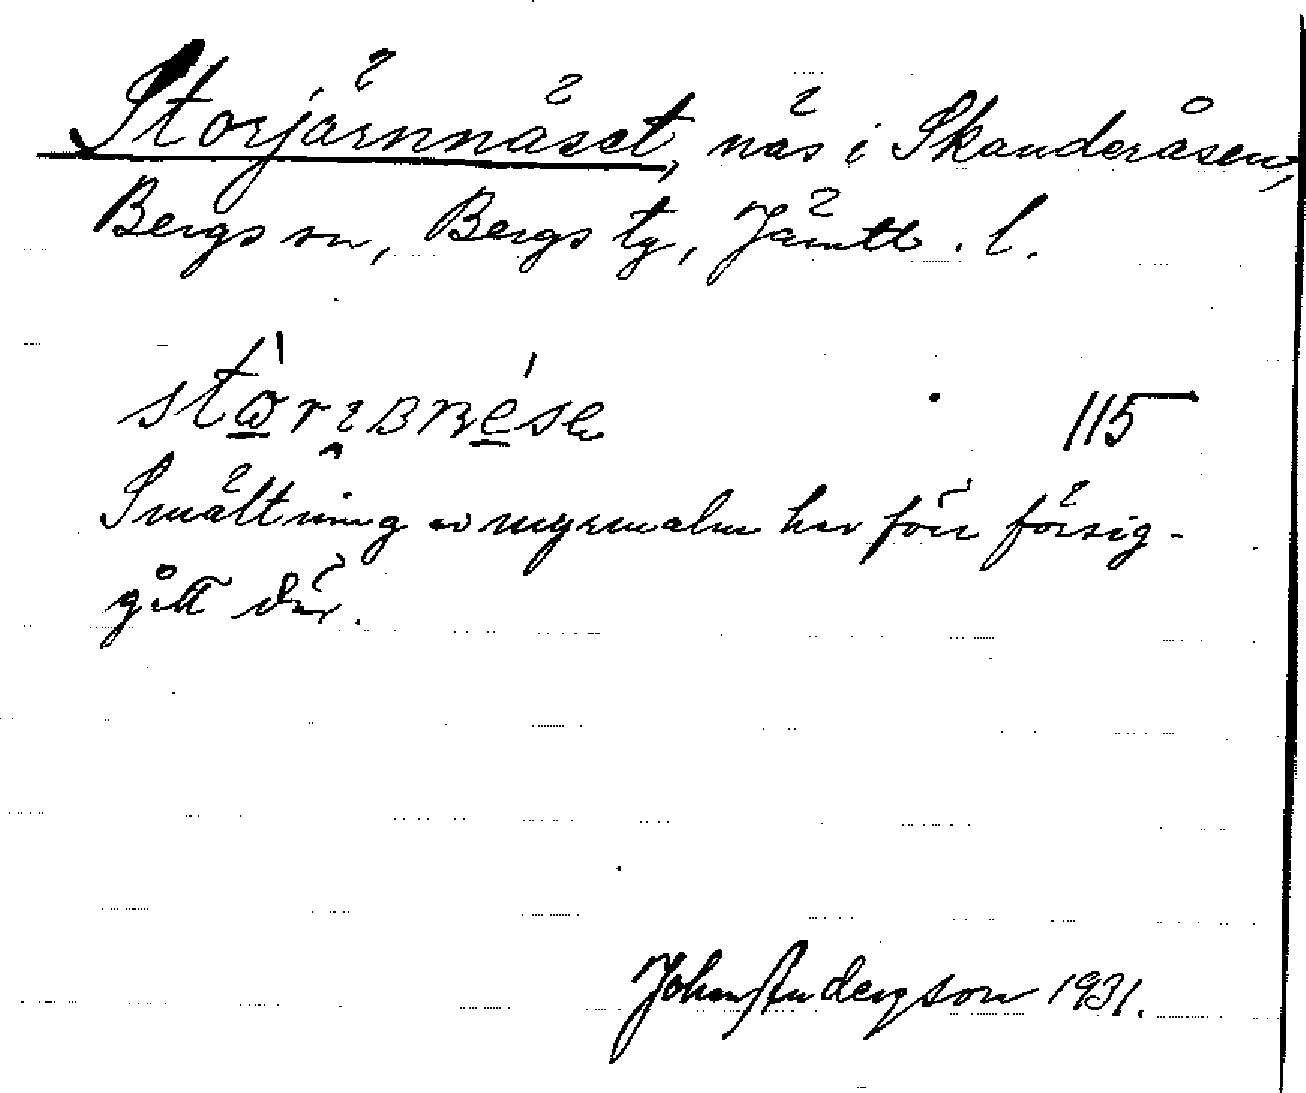 Storjärnnäset, näs i Skanderåsen,
Bergs sn, Bergs tg, Jämtl. l.
115
Smältning av myrmalm har förr försig-
gått där.
Johan Andersson 1931.